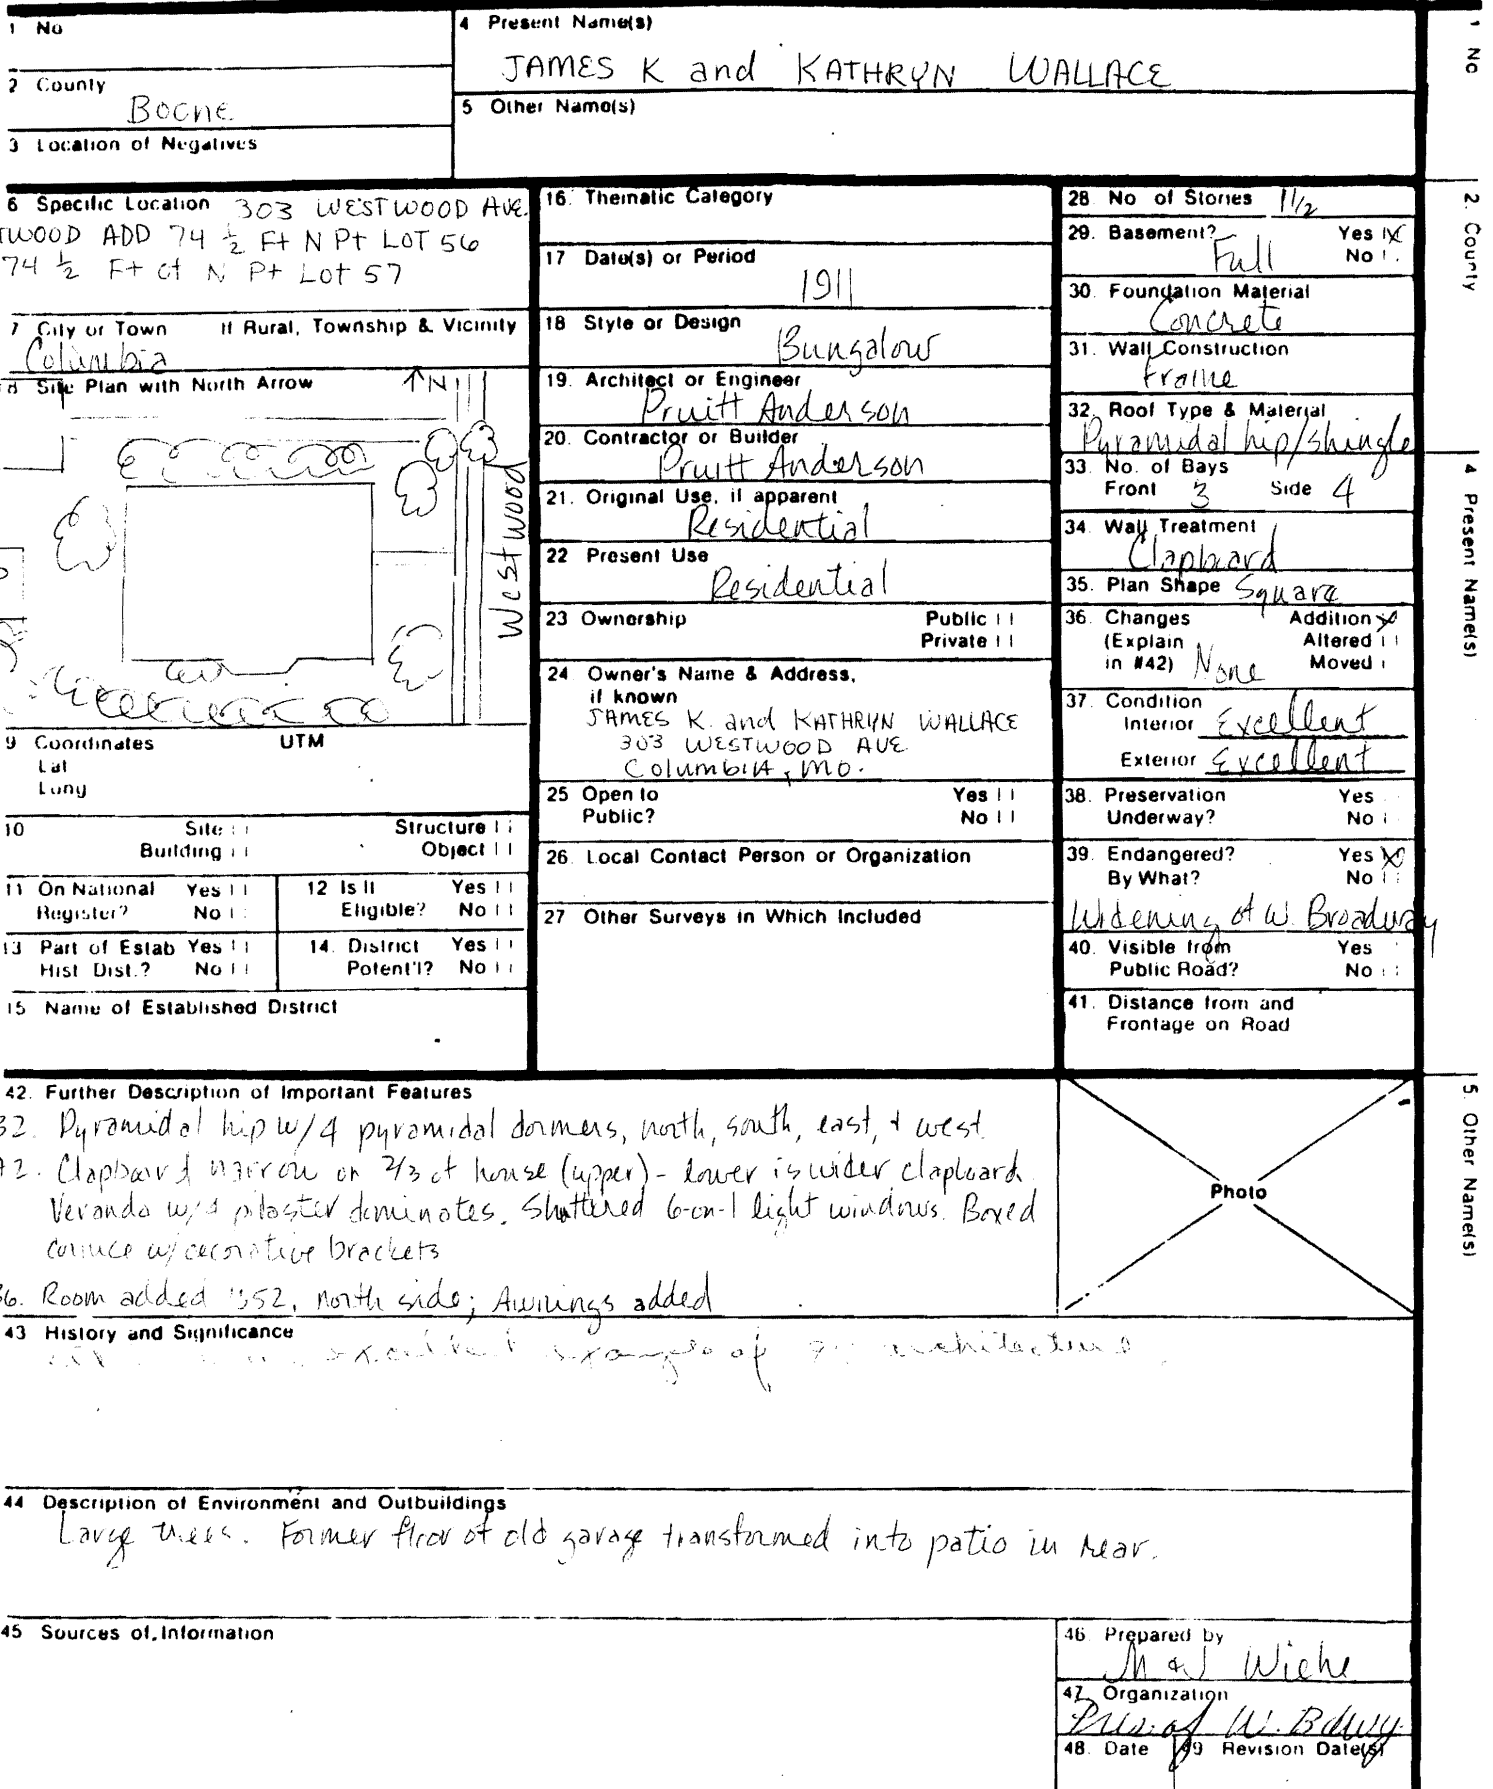 1 No
4 Present Name(s)
JAMES K and KATHRYN WALLACE
2 County
Boone
5 Other Name(s)
3 Location of Negatives
6 Specific Location 303 WESTWOOD AVE.
TWOOD ADD 74 ½ Ft N Pt LOT 56
74 ½ Ft of N Pt Lot 57
7 City or Town If Rural, Township & Vicinity
Columbia
8 Site Plan with North Arrow
N
Westwood
9 Coordinates UTM
Lat
Long
10 Site Structure
Building Object
11 On National Register? Yes No
12 Is It Eligible? Yes No
13 Part of Estab Hist Dist.? Yes No
14. District Potent'l? Yes No
15 Name of Established District
16. Thematic Category
17 Date(s) or Period
1911
18 Style or Design
Bungalow
19. Architect or Engineer
Pruitt Anderson
20. Contractor or Builder
Pruitt Anderson
21. Original Use, if apparent
Residential
22 Present Use
Residential
23 Ownership Public
Private
24 Owner's Name & Address,
if known
JAMES K. and KATHRYN WALLACE
303 WESTWOOD AVE.
Columbia, MO.
25 Open to Yes
Public? No
26. Local Contact Person or Organization
27 Other Surveys in Which Included
28. No of Stories 1 1/2
29. Basement? Yes X
Full No
30. Foundation Material
Concrete
31. Wall Construction
Frame
32. Roof Type & Material
Pyramidal hip/shingle
33. No. of Bays
Front 3 Side 4
34. Wall Treatment
Clapboard
35. Plan Shape Square
36. Changes Addition X
(Explain Altered
in #42) None Moved
37. Condition
Interior Excellent
Exterior Excellent
38. Preservation Yes
Underway? No
39. Endangered? Yes X
By What? No
Widening of W. Broadway
40. Visible from Yes
Public Road? No
41. Distance from and
Frontage on Road
42. Further Description of Important Features
32. Pyramidal hip w/4 pyramidal dormers, north, south, east, + west.
42. Clapboard narrow on 2/3 of house (upper) - lower is wider clapboard.
Veranda pilaster dominates. Shuttered 6-on-1 light windows. Boxed
cornice w/decorative brackets
36. Room added 1952, north side; Awnings added
Photo
43 History and Significance
excellent example of architecture.
44 Description of Environment and Outbuildings
Large trees. Former floor of old garage transformed into patio in rear.
45 Sources of Information
46. Prepared by
M & J Wiehe
47. Organization
Pres. of W. Bdwy.
48. Date 49 Revision Date(s)
1 No
2 County
4 Present Name(s)
5. Other Name(s)